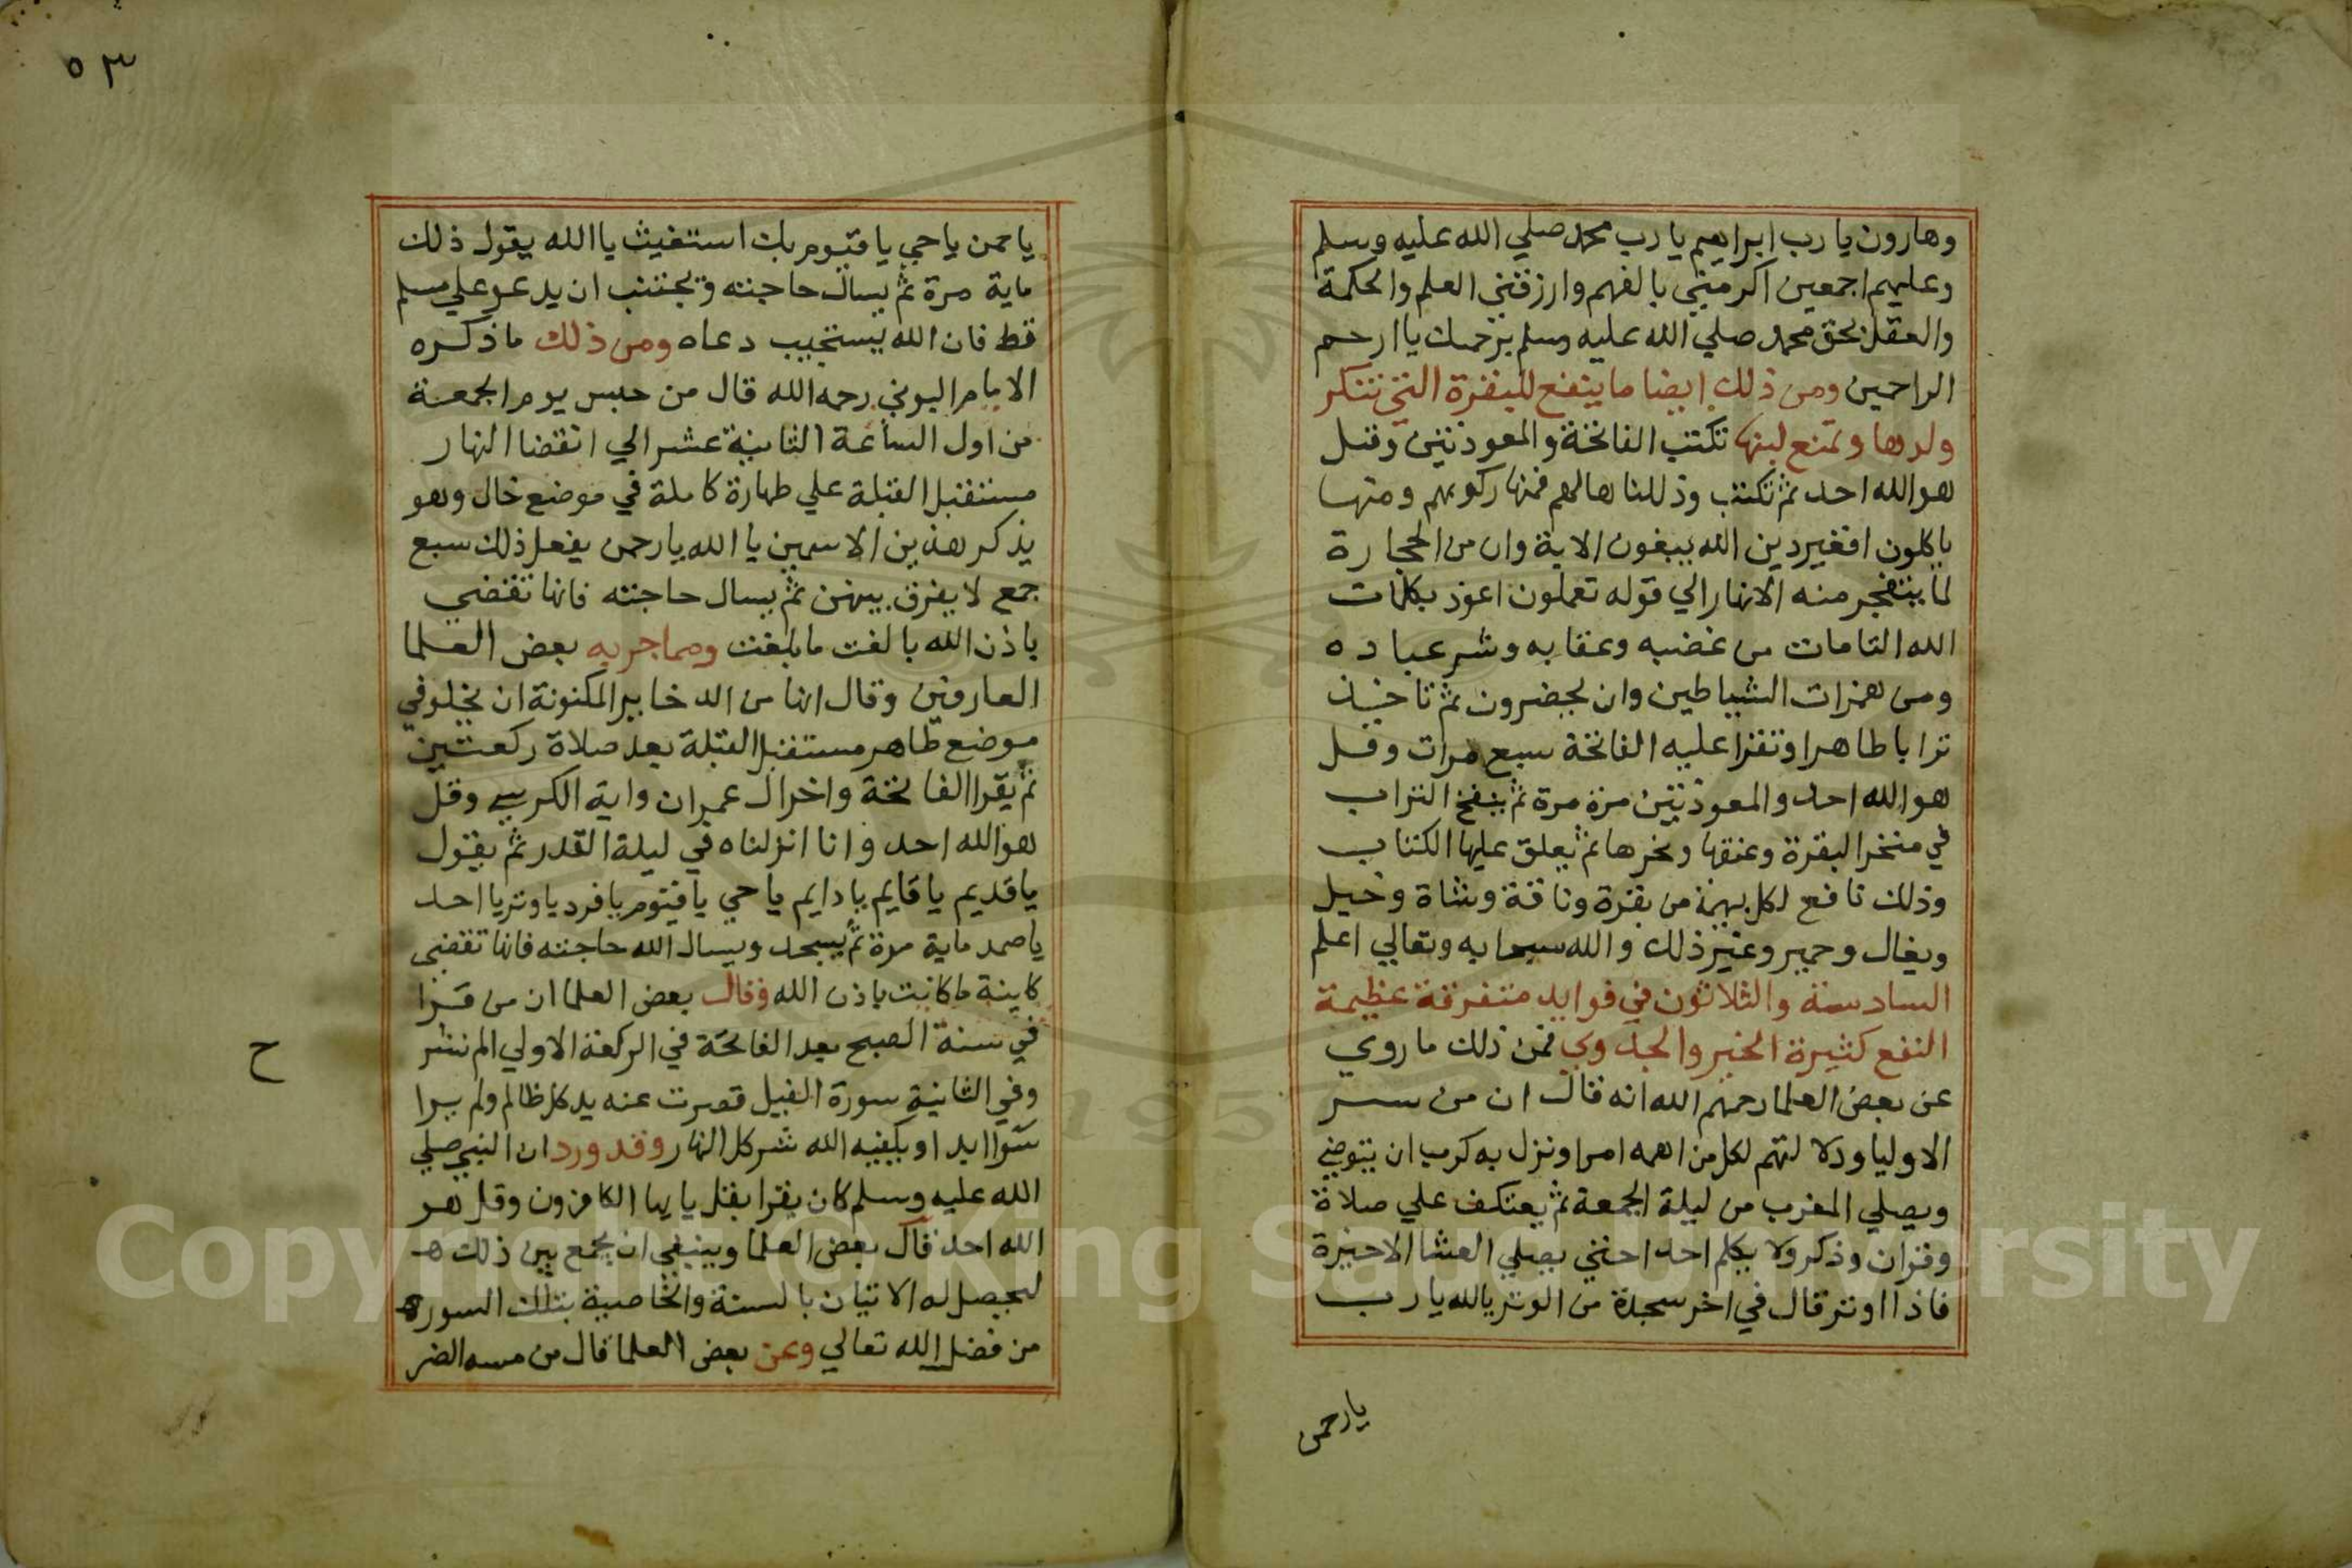 وهارون يا رب ابراهيم يا رب محمد صلي الله عليه وسلم
وعليهم اجمعين اكرمني بالفهم وارزقني العلم والحكمة
والعقل بحق محمد صلي الله عليه وسلم برحمتك يا ارحم
الراحمين ومن ذلك ايضا ما ينفع للبقرة التي تنكر
ولدها وتمنع لبنها تكتب الفاتحة والمعوذتين وقل
هو الله احد ثم تكتب وذللناها لهم فمنها ركوبهم ومنها
ياكلون افغير دين الله يبغون الاية وان من الحجارة
لما يتفجر منه الانهار الي قوله تعملون اعوذ بكلمات
الله التامات من غضبه وعقابه وشر عباده
ومن همزات الشياطين وان يحضرون ثم تاخذ
ترابا طاهرا وتقرا عليه الفاتحة سبع مرات وقل
هو الله احد والمعوذتين مرة مرة ثم ينفخ التراب
في منخر البقرة وعنقها ونحرها ثم يعلق عليها الكتاب
وذلك نافع لكل بهيمة من بقرة وناقة وشاة وخيل
وبغال وحمير وغير ذلك والله سبحانه وتعالي اعلم
السادسة والثلاثون في فوايد متفرقة عظيمة
النفع كثيرة الخير والجدوي فمن ذلك ما روي
عن بعض العلما رحمهم الله انه قال ان من سر
الاوليا ودلالتهم لكل من اهمه امرا ونزل به كرب ان يتوضي
ويصلي المغرب من ليلة الجمعة ثم يعتكف علي صلاة
وقران وذكر ولا يكلم احد احتي يصلي العشا الاخيرة
فاذا اوتر قال في اخر سجدة من الوتر يا لله يا رب
يا رحمن
٥٣
يا حمن يا حي يا قيوم بك استغيث يا الله يقول ذلك
ماية مرة ثم يسال حاجته ويجتنب ان يدعو علي مسلم
قط فان الله يستجيب دعاه ومن ذلك ما ذكره
الامام البوني رحمه الله قال من حبس يوم الجمعة
من اول الساعة الثانية عشر الي انقضا النهار
مستقبل القبلة علي طهارة كاملة في موضع خال وهو
يذكر هذين الاسمين يا الله يا رحمن يفعل ذلك سبع
جمع لا يفرق بينهن ثم يسال حاجته فانها تقضي
باذن الله بالغت ما بلغت ومما جربه بعض العلما
العارفين وقال انها من الدخاير المكنونة ان يخلو في
موضع طاهر مستقبل القبلة بعد صلاة ركعتين
ثم يقرا الفاتحة واخر ال عمران واية الكرسي وقل
هو الله احد وانا انزلناه في ليلة القدر ثم يقول
يا قديم يا قايم يا دايم يا حي يا قيوم يا فرد يا وتر يا احد
يا صمد ماية مرة ثم يسجد ويسال الله حاجته فانها تقضي
كاينة ما كانت باذن الله وقال بعض العلما ان من قرا
في سنة الصبح بعد الفاتحة في الركعة الاولي الم نشر
ح
وفي الثانية سورة الفيل قصرت عنه يد كل ظالم ولم يرا
سوا ابدا ويكفيه الله شر كل النهار وقد ورد ان النبي صلي
الله عليه وسلم كان يقرا بقل يا يها الكافرون وقل هو
الله احد قال بعض العلما وينبغي ان يجمع بين ذلك هـ
ليحصل له الاتيان بالسنة والخاصية بتلك السورة
من فضل الله تعالي وعن بعض العلما قال من مسه الضر
Copyright © King Saud University
195